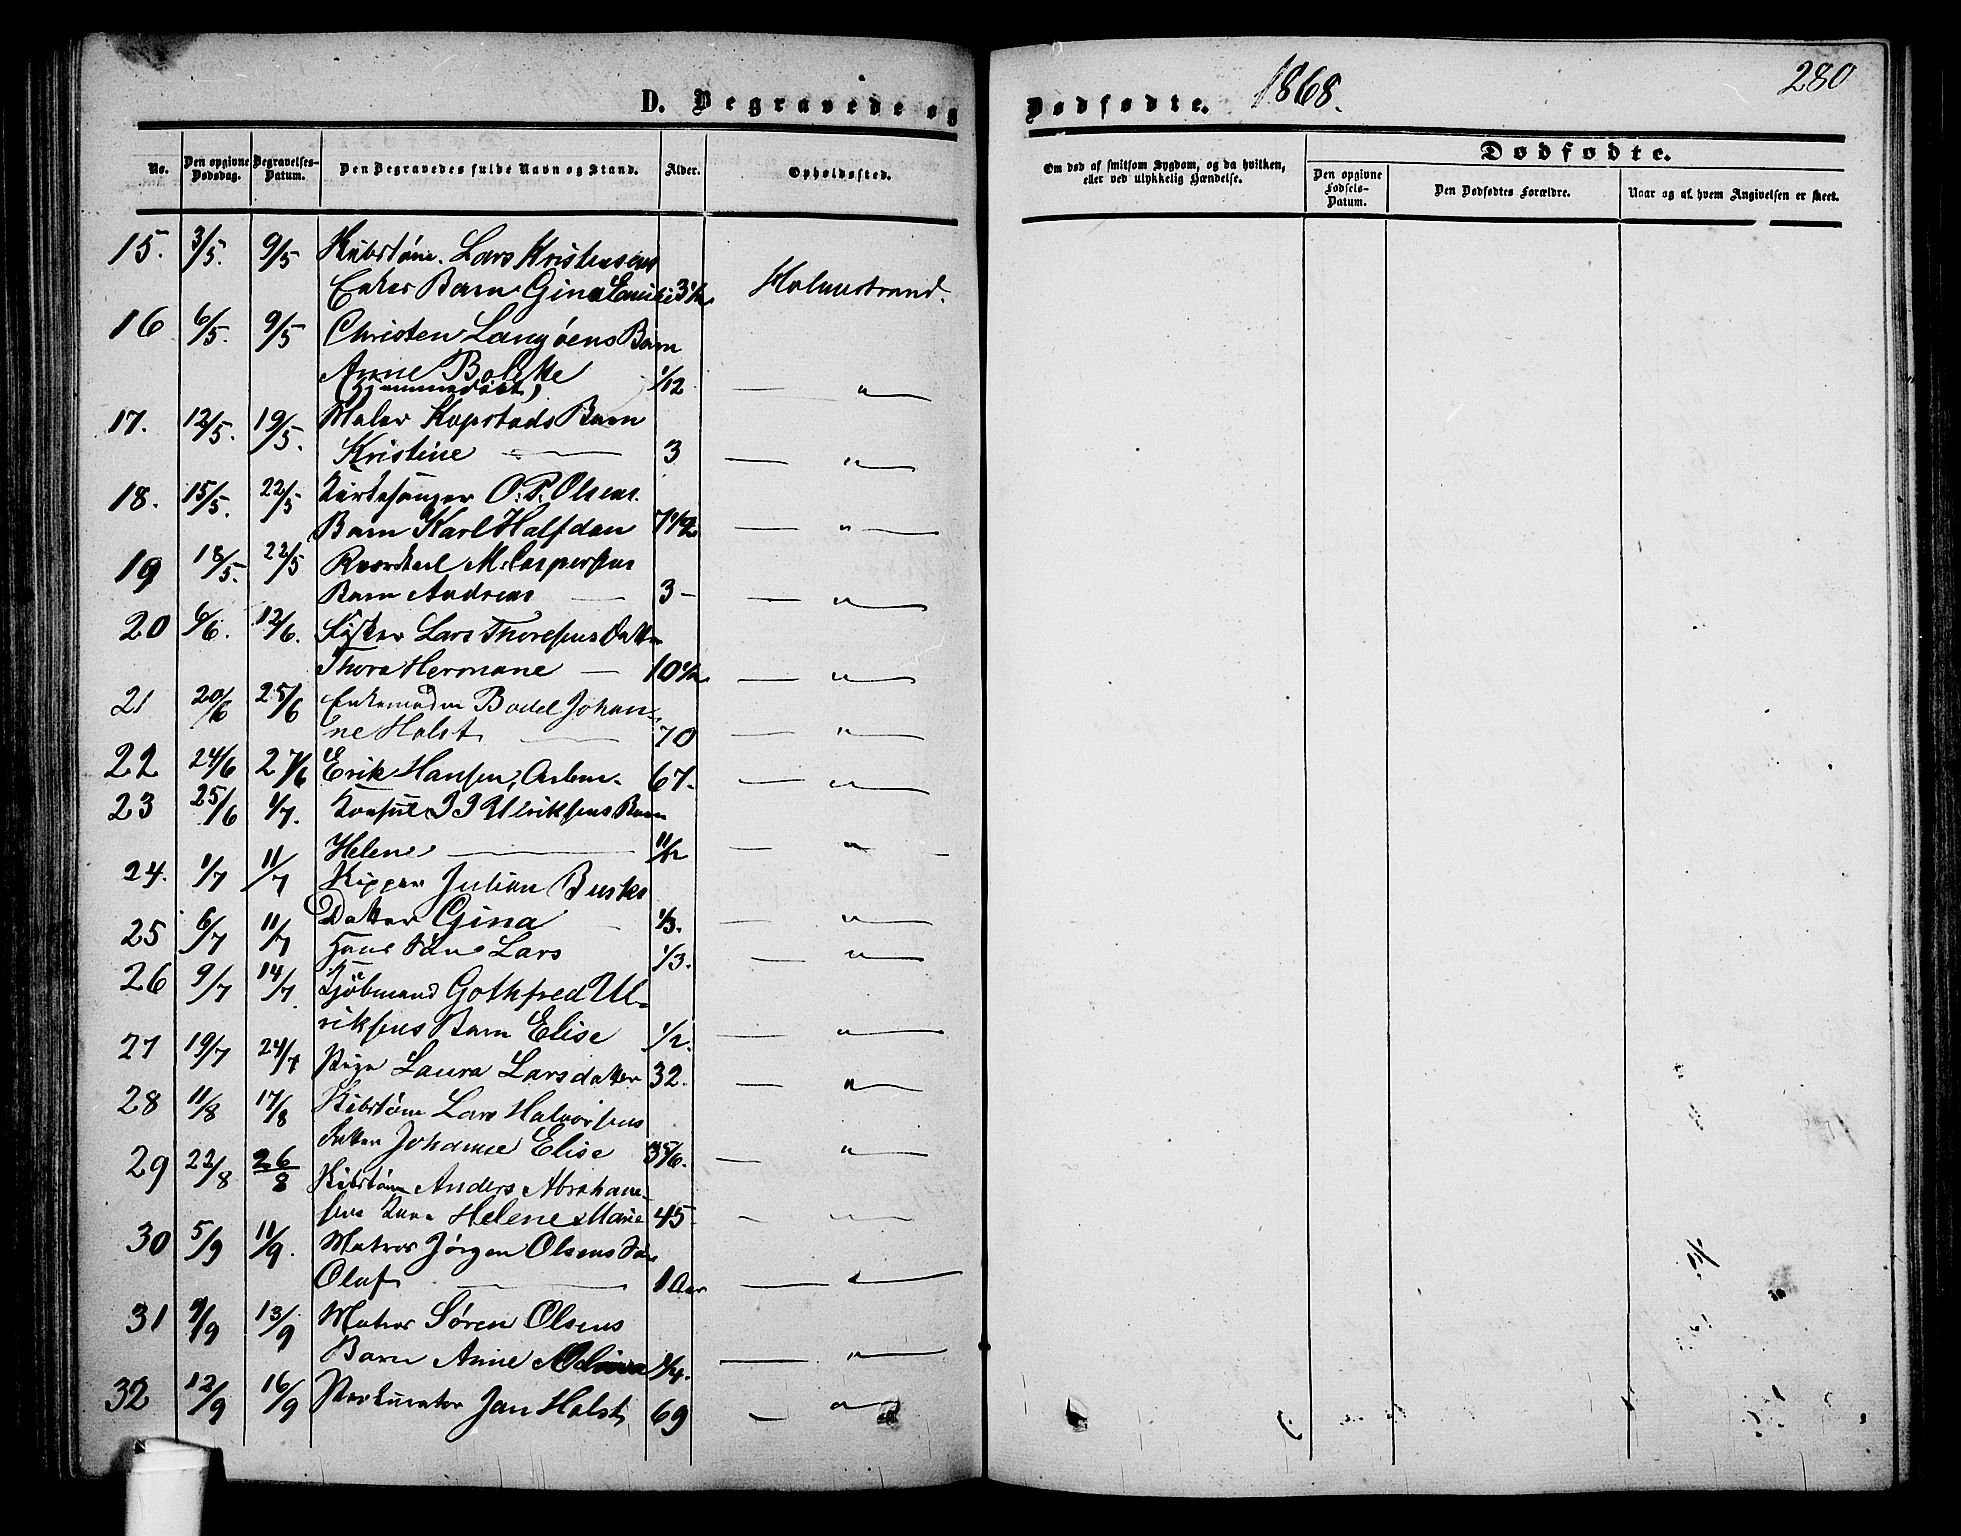 D. Begravede og
Dødfødte. 1868.
280
No. Den opgivne Dødsdag. Begravelses-Datum. Den Begravedes fulde Navn og Stand. Alder. Opholdssted.
Om død af smitsom Sygdom, og da hvilken, eller ved ulykkelig Hændelse.
Dødfødte.
Den opgivne Fødsels-Datum. Den Dødfødtes Forældre. Naar og af hvem Angivelsen er skeet.
15. 3/5. 9/5 Lars Kristensens
Enkes Barn Gina Emilie 3 1/2 Holmestrand.
16 6/5. 9/5 Christen Langøens Barn
Anne Bolette 1/12 — "
(hjemmedøbt)
17. 12/5. 19/5. Maler Kopstads Barn
Kristine — 3 — "
18. 15/5. 22/5 Kirkesanger O. P. Olsens
Barn Karl Halfdan — "
19 18/5. 22/5 M. Caspersens
Barn Andreas — 3 — — "
20 6/6. 12/6. Fisker Lars Thoresens Datter
Thora Hermane — 10 1/2 — "
21 20/6 25/6 Enkemadm Bodel Johan-
ne Holst — 70 — "
22 24/6 27/6 Erik Hansen, Arbm. 67. — "
23 25/6 1/7. Konsul J J Ulriksens Barn
Helene — 11/12 — "
24. 1/7 11/7 Skipper Julian Buskes
Datter Gina 1/3. — "
25 6/7 11/7 Hans Søn Lars 1/3. — "
26 9/7 14/7 Kjøbmand Gothfred Ul-
riksens Barn Elise 1/2. — "
27 19/7 24/7 Pige Laura Larsdatter 32. — "
28 11/8 17/8 Lars Halvorsens
Datter Johanne Elise 3 5/6. — "
29 22/8 26/8 Anders Abraham-
sens Kone Helene Marie 45 — "
30 5/9 11/9. Matros Jørgen Olsens Søn
Olaf — 1 Aar — "
31 9/9 13/9 Matros Søren Olsens
Barn Anne 1/4. — "
32 12/9 16/9 Prokurator Jan Holst 69 — "